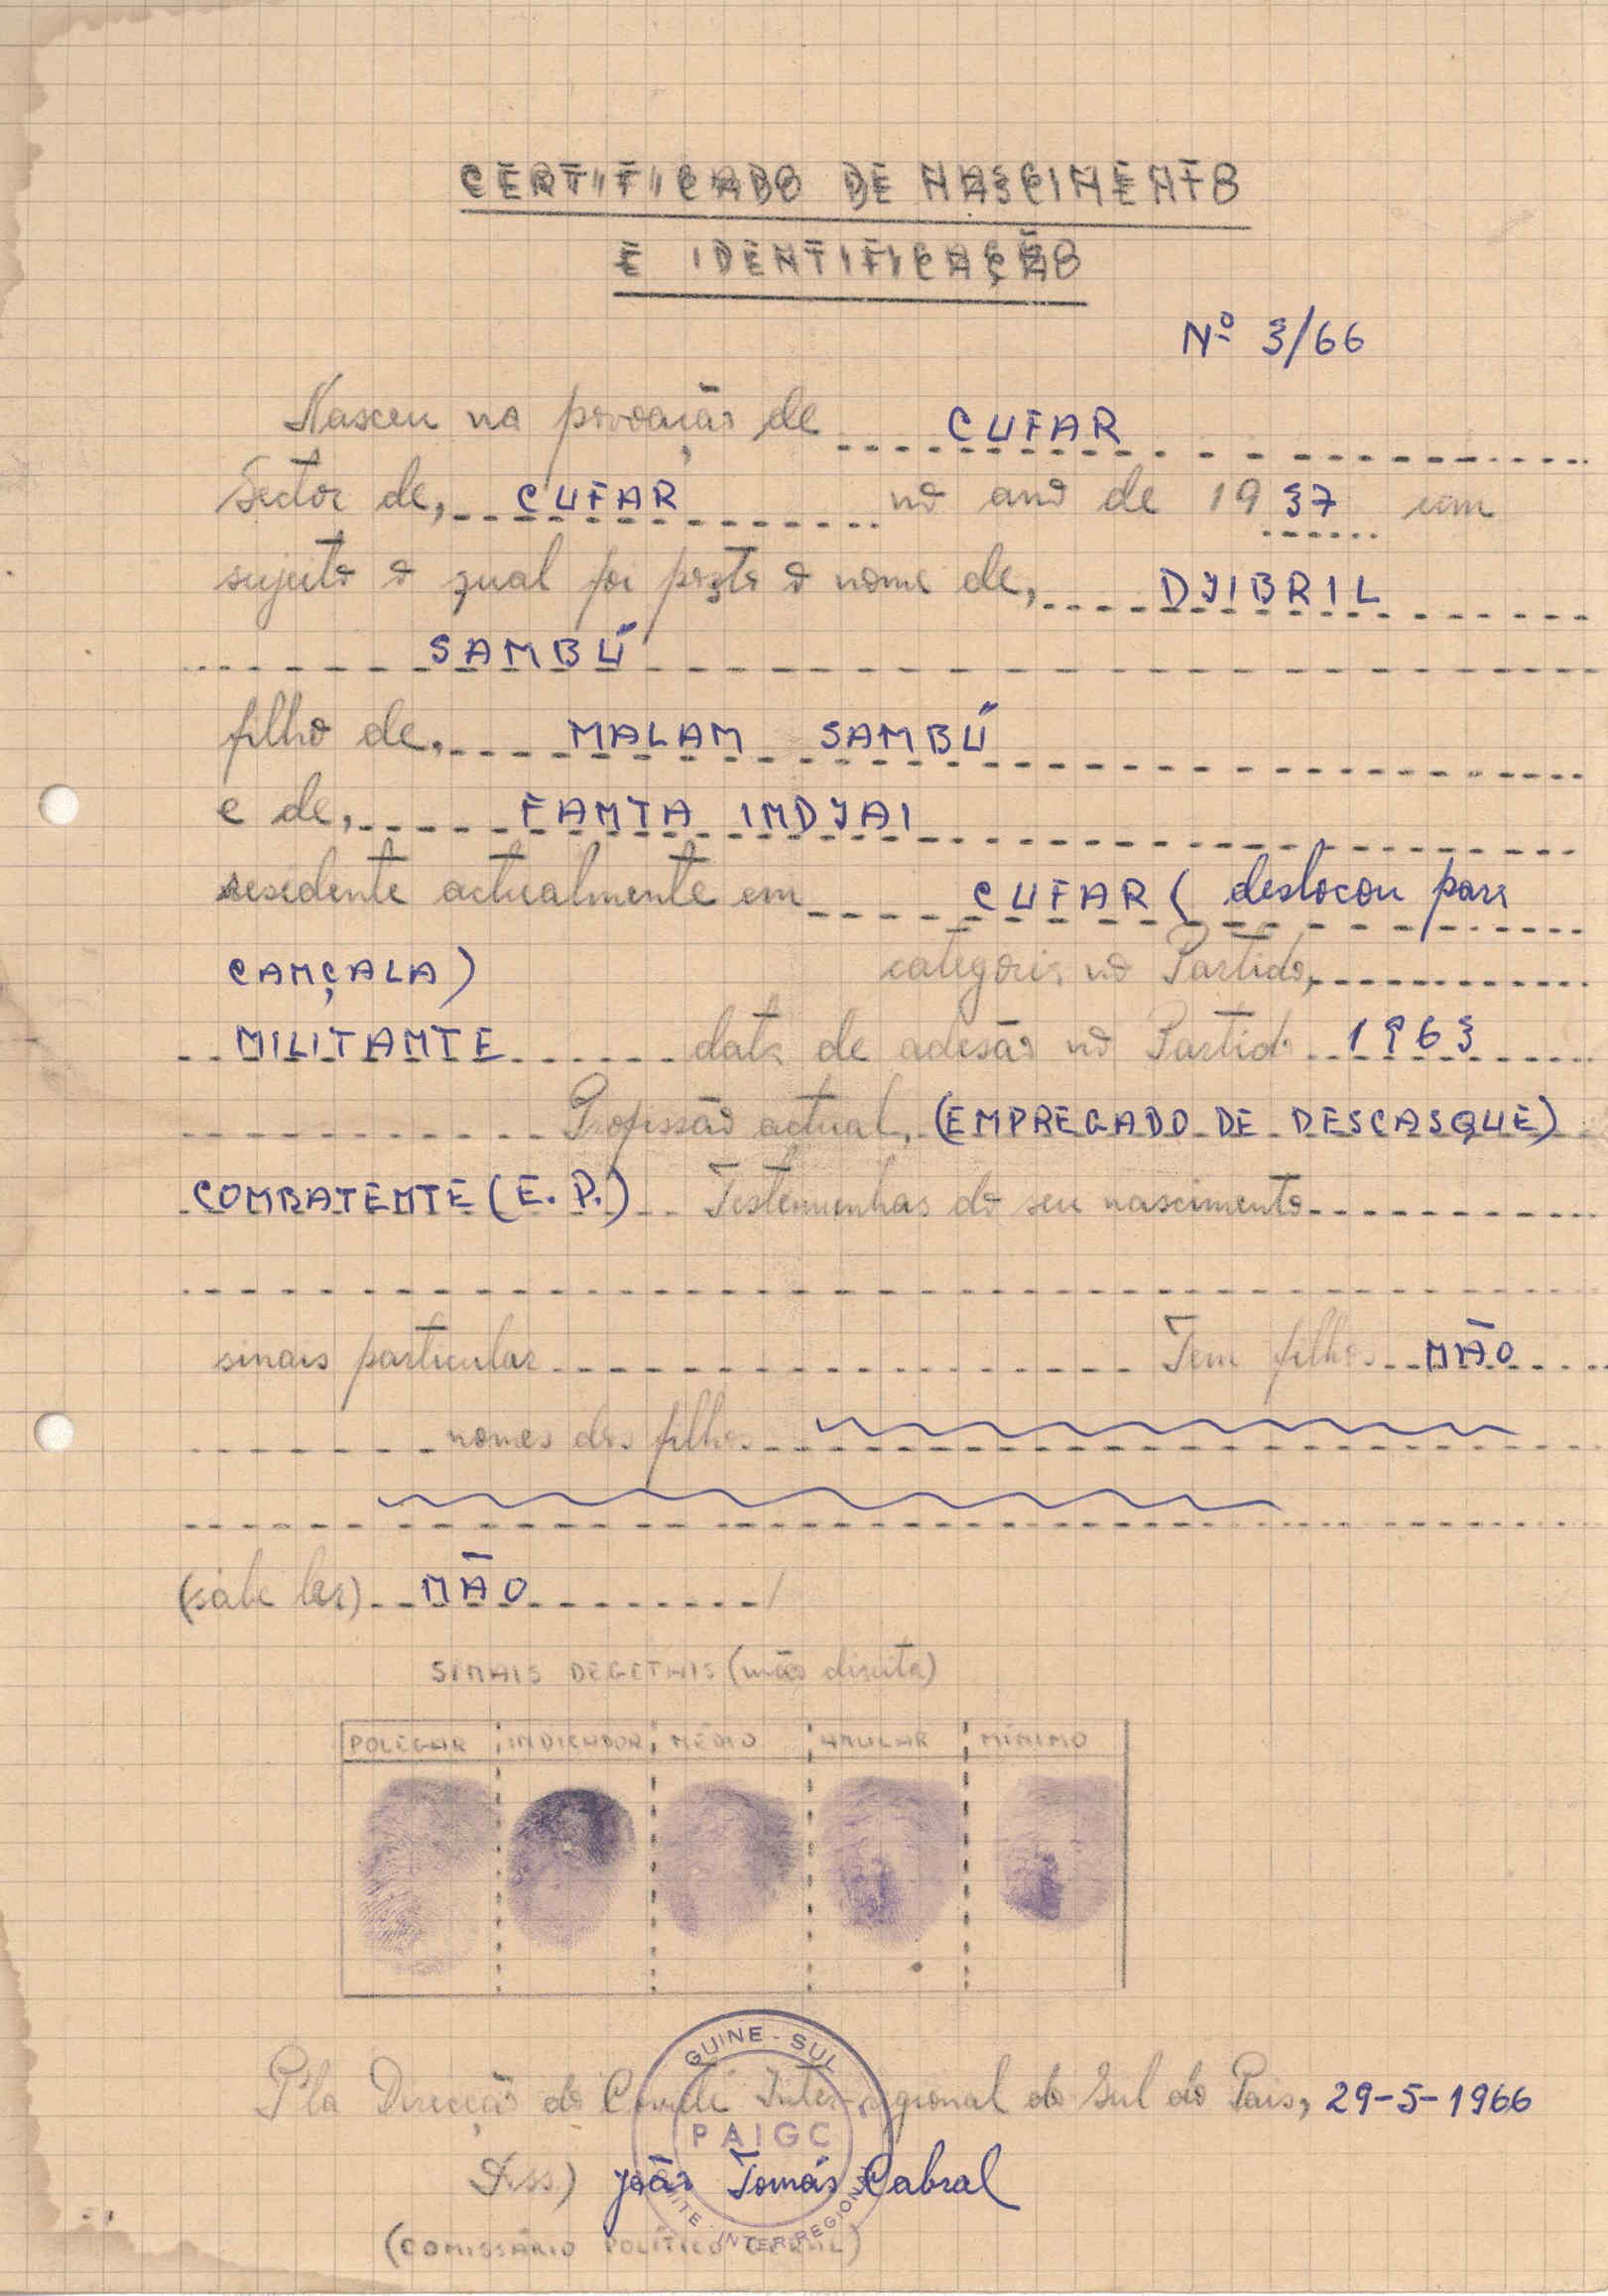 CERTIFICADO DE NASCIMENTO
E IDENTIFICAÇÃO
Nº 3/66
Nasceu na povoação de CUFAR
Sector de, CUFAR no ano de 1937 um
sujeito o qual foi posto o nome de, DJIBRIL
SAMBÚ
filho de, MALAM SAMBÚ
e de, FAMTA IMDJAI
residente actualmente em CUFAR ( deslocou para
CAMÇALA) categoria no Partido,
MILITAMTE data de adesão no Partido 1963
Profissão actual, (EMPREGADO DE DESCASQUE)
COMBATEMTE (E. P.) Testemunhas do seu nascimento
sinais particular Tem filhos MÃO
nomes dos filhos
(sabe ler) MÃO /
SIMAIS DEGITAIS (mão direita)
POLEGAR INDICADOR MÉDIO AMULAR MÍMIMO
GUINE - SUL
P'la Direcção do Comité Inter-regional do Sul do Pais, 29-5-1966
PAIGC
Ass) João Tomás Cabral
COMITE INTER REGIONAL
(COMISSÁRIO POLÍTICO GERAL)